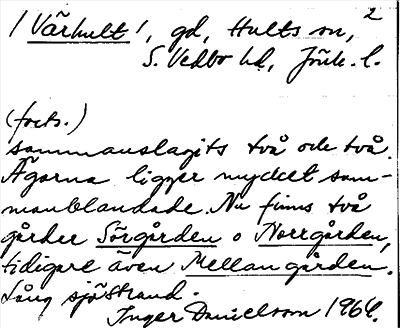 2
/ Värhult /, gd, Hults sn,
S. Vedbo hd, Jönk. l.
(forts.)
sammanslagits två och två.
Ägorna ligger mycket sam-
manblandade. Nu finns två
gårder Sörgården o Norrgården,
tidigare även Mellangården.
Lång sjöstrand.
Inger Danielson 1964.